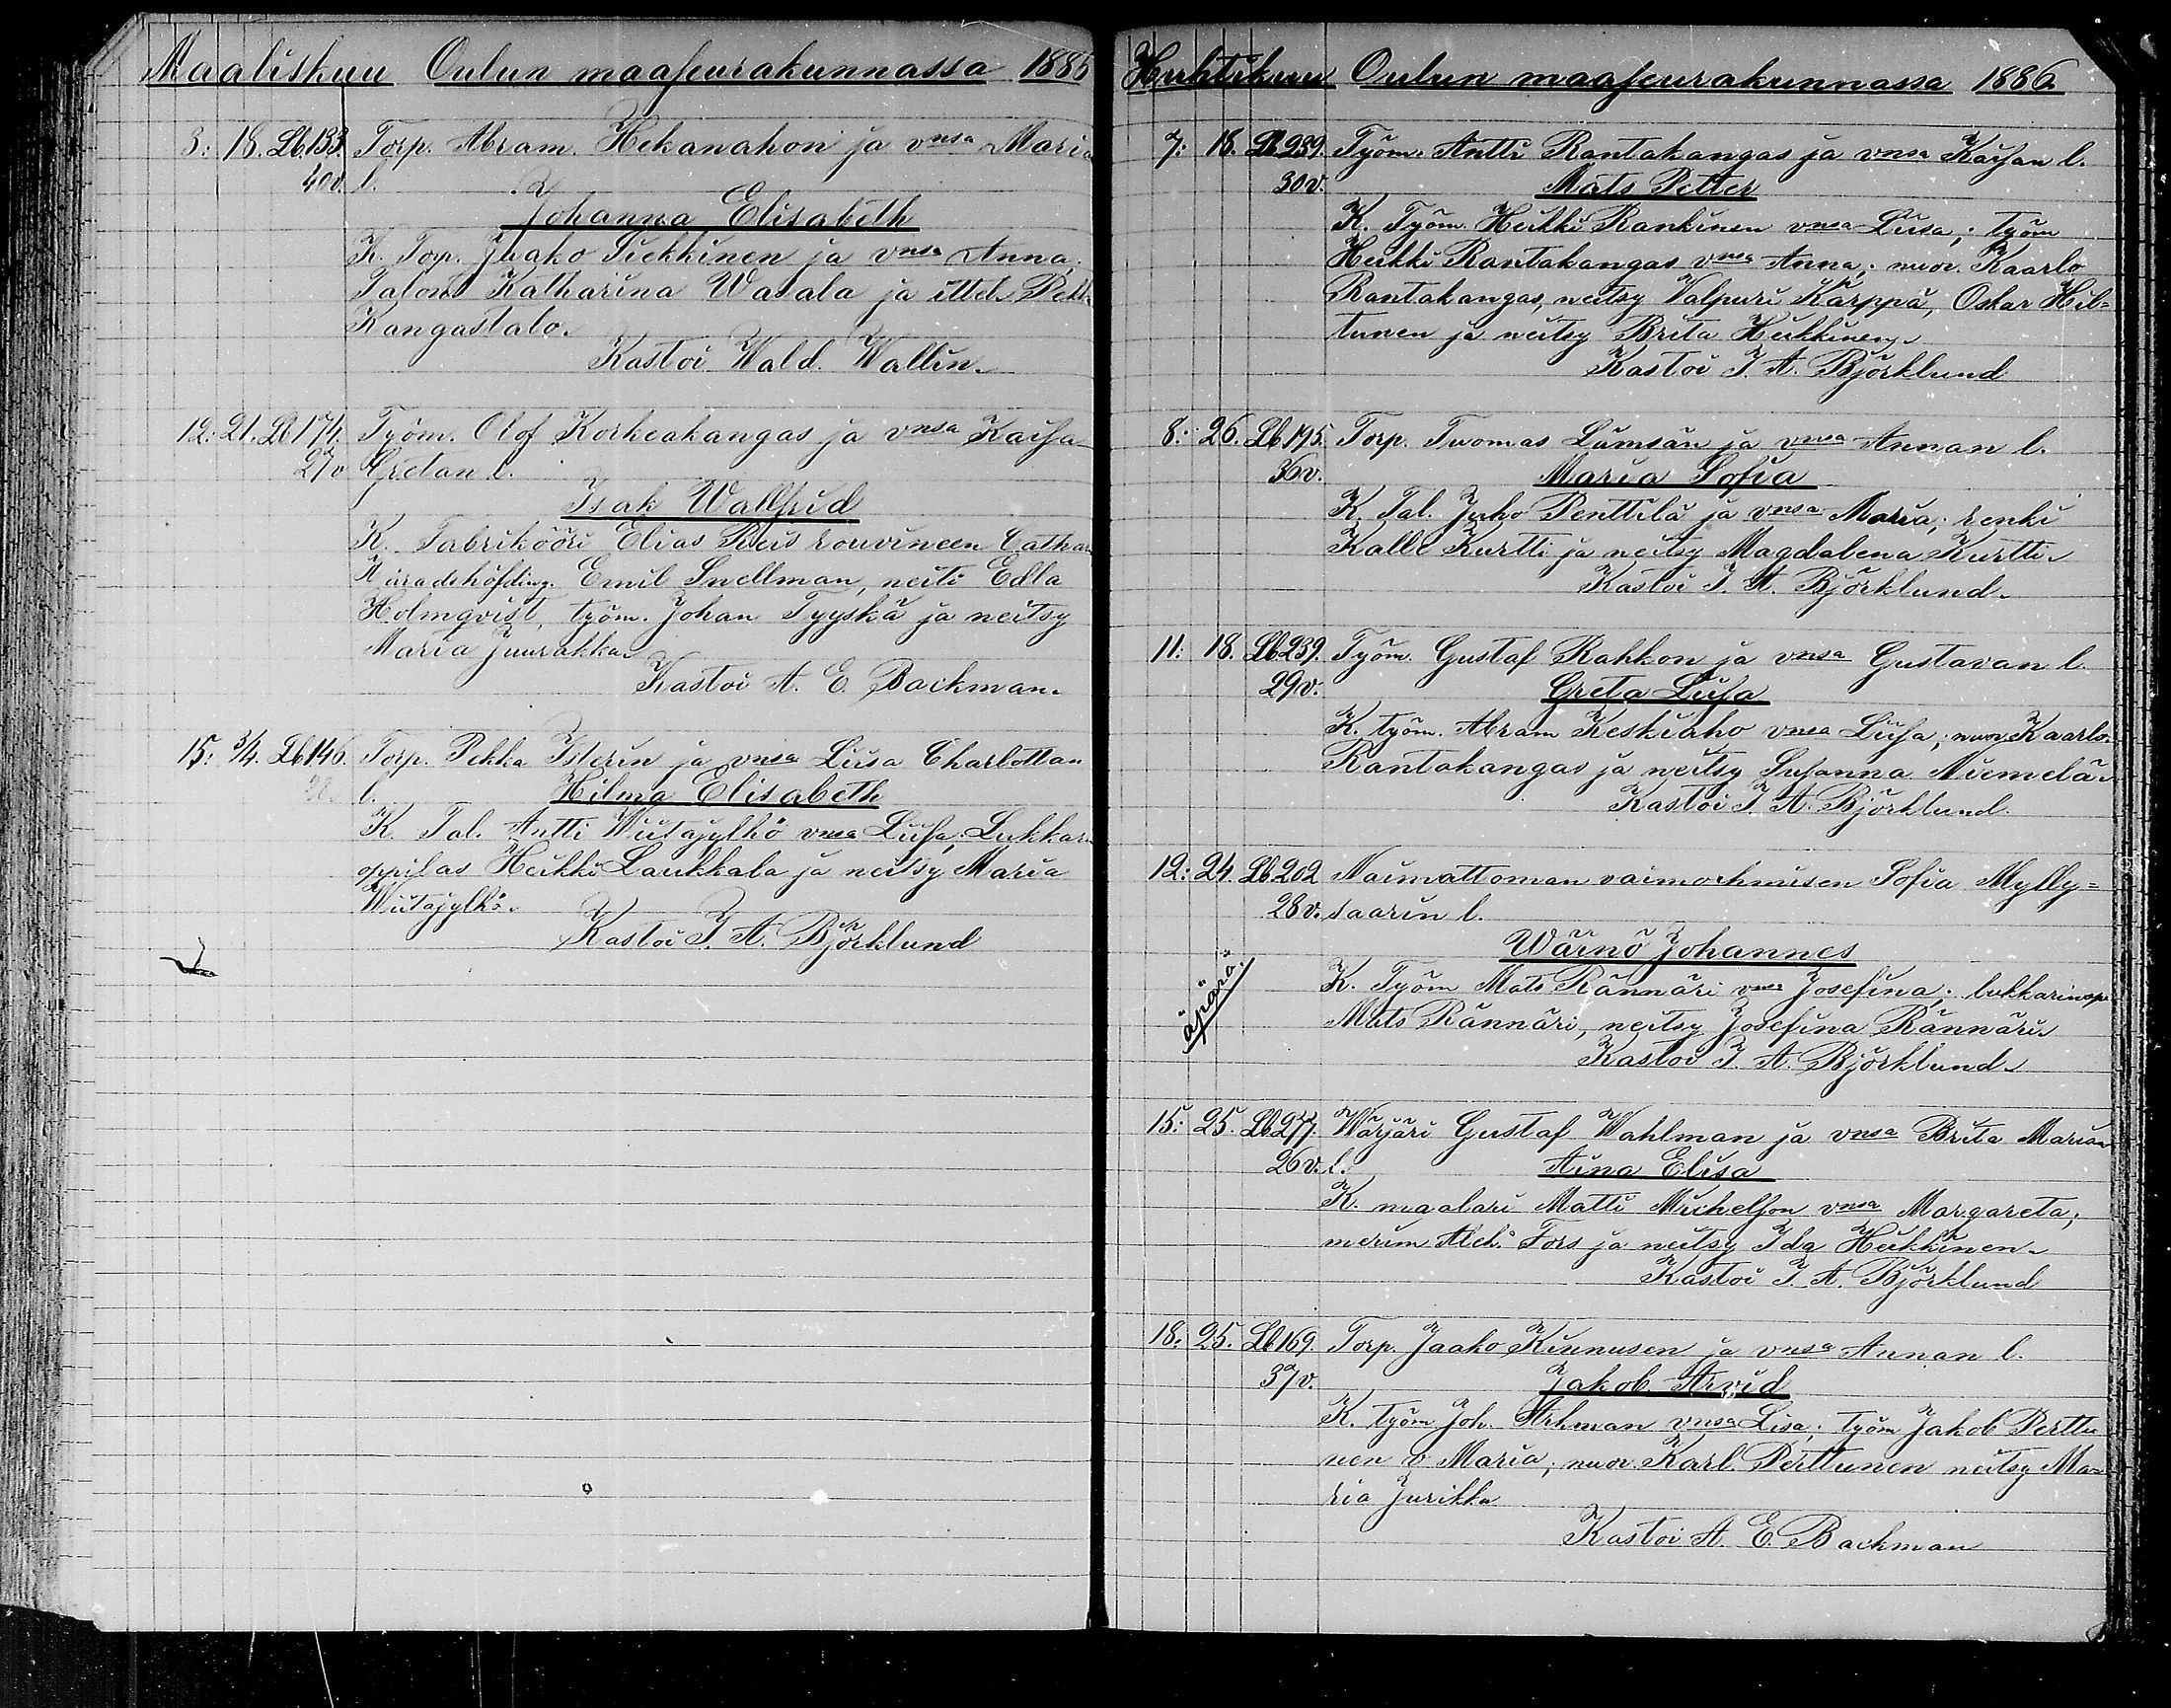 Maaliskuu Oulun maaseurakunnassa 1886
3: 18. Lb.133. Torp. Abram. Hekanahon ja vmsa Maria
40v. l.
Johanna Elisabeth
K. Torp. Jaako Siekkinen ja vmsa Anna,
Talons Katharina Watala ja ittel. Pekk
Kangastalo.
Kastoi Wald. Wallin.
12: 21. Lb 174. Työm. Olof Korkeakangas ja vmsa Kaisa
27v Gretan l.
Isak Wallfrid
K. Fabrikööri Elias Reis rouvineen Cathar
Häradshöfding. Emil Snellman, neiti Edla
Holmqvist, työm. Johan Tyyskä ja neitsy
Maria Juurakka.
Kastoi A. E. Backman.
15: 3/4. Lb 146. Torp. Pekka Isterin ja vmsa Liisa Charlottan
28. l. Hilma Elisabeth
K. Tal. Antti Wiitajylhö vmsa Liisa, Lukkar.
oppilas Heikki Laukkala ja neitsy Maria
Wiitajylhö.
Kastoi J. A. Björklund
Huhtikuu Oulun maaseurakunnassa 1886
7: 18. Lb 239. Työm. Antti Rantakangas ja vmsa Kaisan l.
30v. Mats Petter
K. Työm. Heikki Rankinen vmsa Liisa; työm
Heikki Rantakangas vmsa Anna; nuor. Kaarlo
Rantakangas, neitsy Valpuri Kärppä, Oskar Hil=
tunen ja neitsy Brita Heikkinen.
Kastoi J. A. Björklund
8: 26. Lb.195. Torp. Tuomas Lämsän ja vmsa Annan l.
36v. Maria Sofia
K. Tal. Juho Penttilä ja vmsa Maria; renki
Kalle Kurtti ja neitsy Magdalena Kurtti.
Kastoi J. A. Björklund.
11: 18. Lb 239. Työm. Gustaf Rahkon ja vmsa Gustavan l.
29v. Greta Liisa
K. työm. Abram Keskiaho vmsa Liisa; nuor Kaarlo
Rantakangas ja neitsy Susanna Niemelä.
Kastoi J. A. Björklund.
12: 24. Lb.202 Naimattoman vaimoihmisen Sofia Mylly=
28v. saarin l.
Wäinö Johannes
äpärä. K. Työm Mats Rännäri vmsa Josefina; lukkarinop
Mats Rännäri, neitsy Josefina Rännäri.
Kastoi J. A. Björklund.
15: 25. Lb277. Wärjäri Gustaf Wahlman ja vmsa Brita Marian
26v. l. Aina Elisa
K. maalari Matti Michelson vmsa Margareta;
merim Alek. Fors ja neitsy Ida Heikkinen.
Kastoi J. A. Björklund
18: 25. Lb169. Torp. Jaako Kinnusen ja vmsa Annan l.
37v. Jakob Arvid
K. Työm Joh. Arhman vmsa Lisa; työm Jakob Perttu
nen v. Maria; nuor. Karl. Perttunen neitsy Ma=
ria Jurikka
Kastoi A. E. Backman